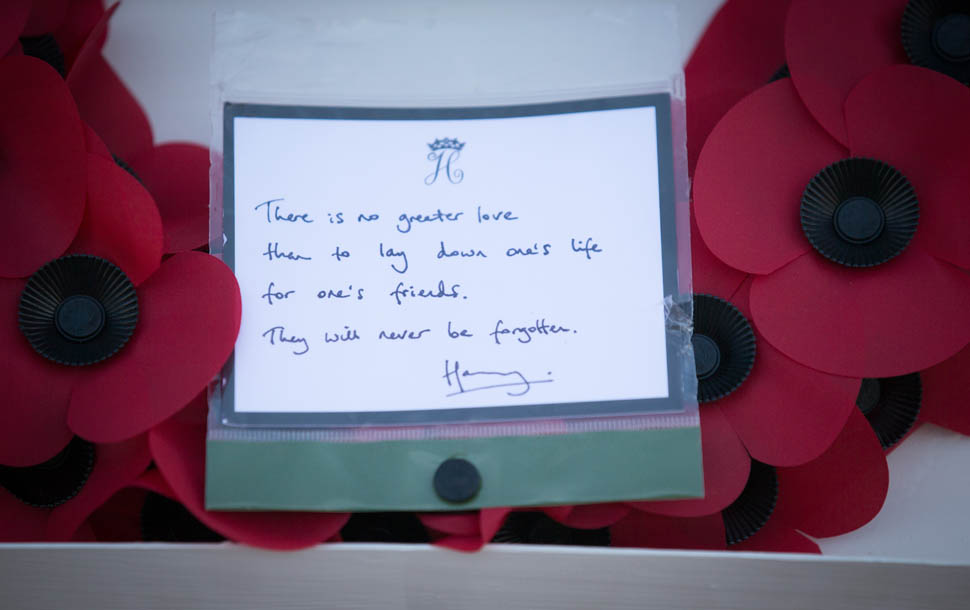 H
There is no greater love
than to lay down one's life
for one's friends.
They will never be forgotten.
Harry.